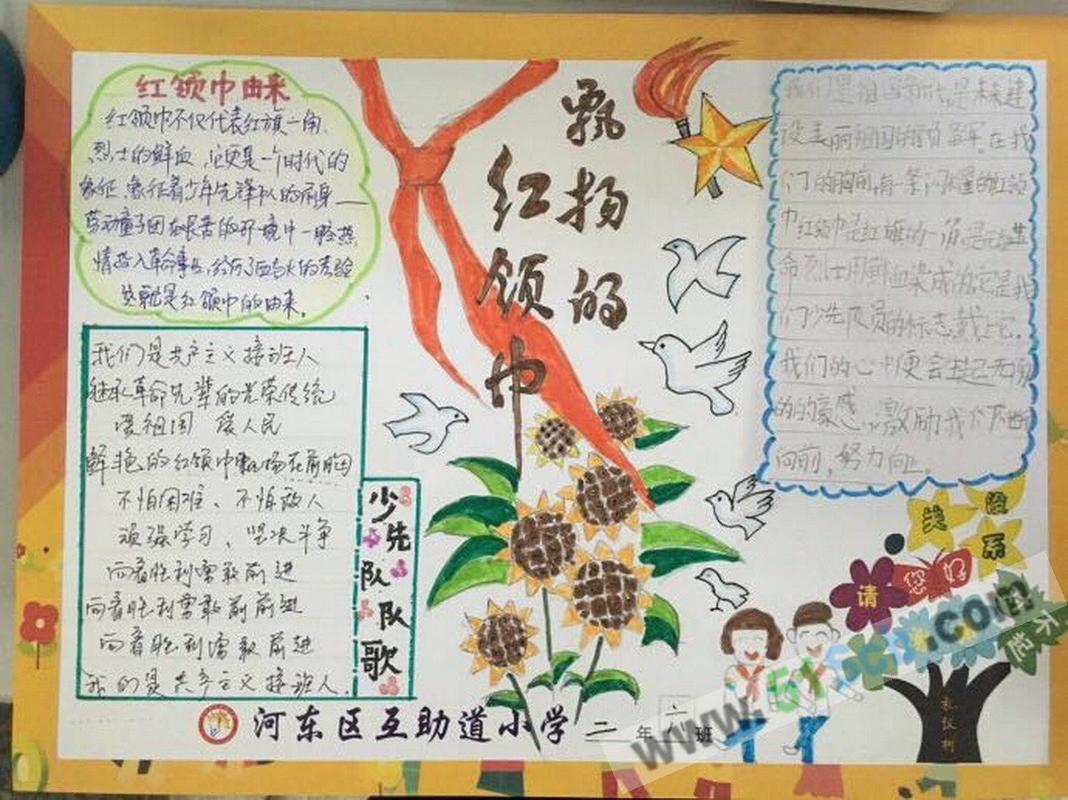 红领巾由来
红领巾不仅代表红旗一角
烈士的鲜血,它更是一个时代的
象征,象征着少年先锋队的前身——
劳动童子团在艰苦的环境中一腔热
情投入革命事业,经历了血与火的考验
这就是红领巾的由来。
飘扬的
红领巾
我们是祖国
设美丽祖国的
巾红领巾是红旗的一角是
命烈士用鲜血染成的它是我
们少先队员的标志戴上它,
我们的心中便会
的豪感,激励我们不断
向前,努力向上。
我们是共产主义接班人
继承革命先辈的光荣传统
爱祖国 爱人民
鲜艳的红领巾飘扬在前胸
不怕困难、不怕敌人
顽强学习、坚决斗争
向着胜利勇敢前进
向着胜利勇敢前前进
向着胜利勇敢前进
我们是共产主义接班人.
少先队队歌
请
您好
关系
礼仪树
河东区互助道小学二年六班